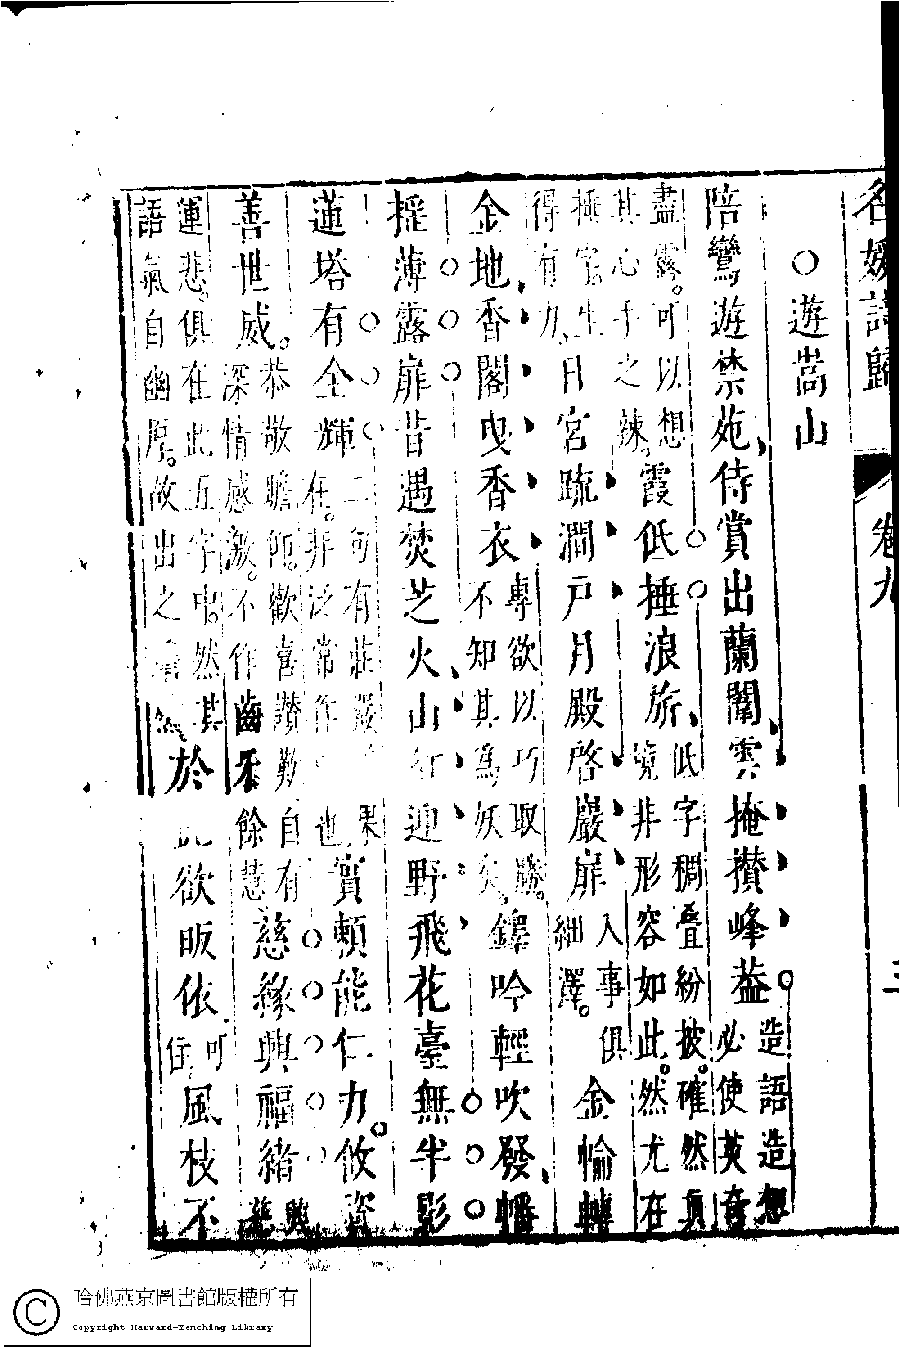 名媛詩歸
卷九
三
○遊嵩山
陪鸞遊禁苑侍賞出蘭闈雲掩攅峰葢造語造想必使英奇
盡露可以想其心手之辣霞低捶浪旂低字稠叠紛披確然真境非形容如此然尤在
捶字生得有力日宮疏澗戶月殿啓巖扉入事俱細澤金輪轉
金地香閣曳香衣專欲以巧取勝不知其爲妖矣鐸吟輕吹發幡
搖薄露扉昔遇焚芝火山紅迎野飛花臺無半影
蓮塔有全輝二句有莊嚴在非泛常作也果實頼能仁力攸資
善世威恭敬瞻仰歡喜讃歎自有深情感激不作齒牙餘慧慈緣興福緒興慈
運悲俱在此五字中然其語氣自幽厚故出之於此欲皈依可住風枝不
哈佛燕京圖書館版權所有
Copyright Harvard-Yenching Library